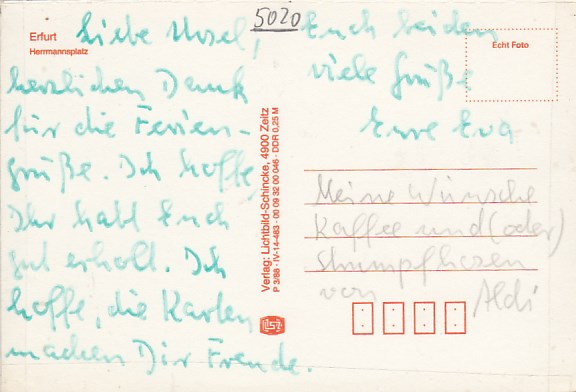 5020
Erfurt
Herrmannsplatz
Liebe Ursel,
herzlichen Dank
für die Ferien-
grüße. Ich hoffe,
Ihr habt Euch
gut erholt. Ich
hoffe, die Karten
machen Dir Freude.
Euch beiden
viele Grüße
Eure Eva
Echt Foto
Verlag: Lichtbild-Schincke, 4900 Zeitz
P 3/88 · IV-14-483 · 00 09 32 00 046 · DDR 0,25 M
Meine Wünsche
Kaffee und (oder)
Strumpfhosen
von Aldi